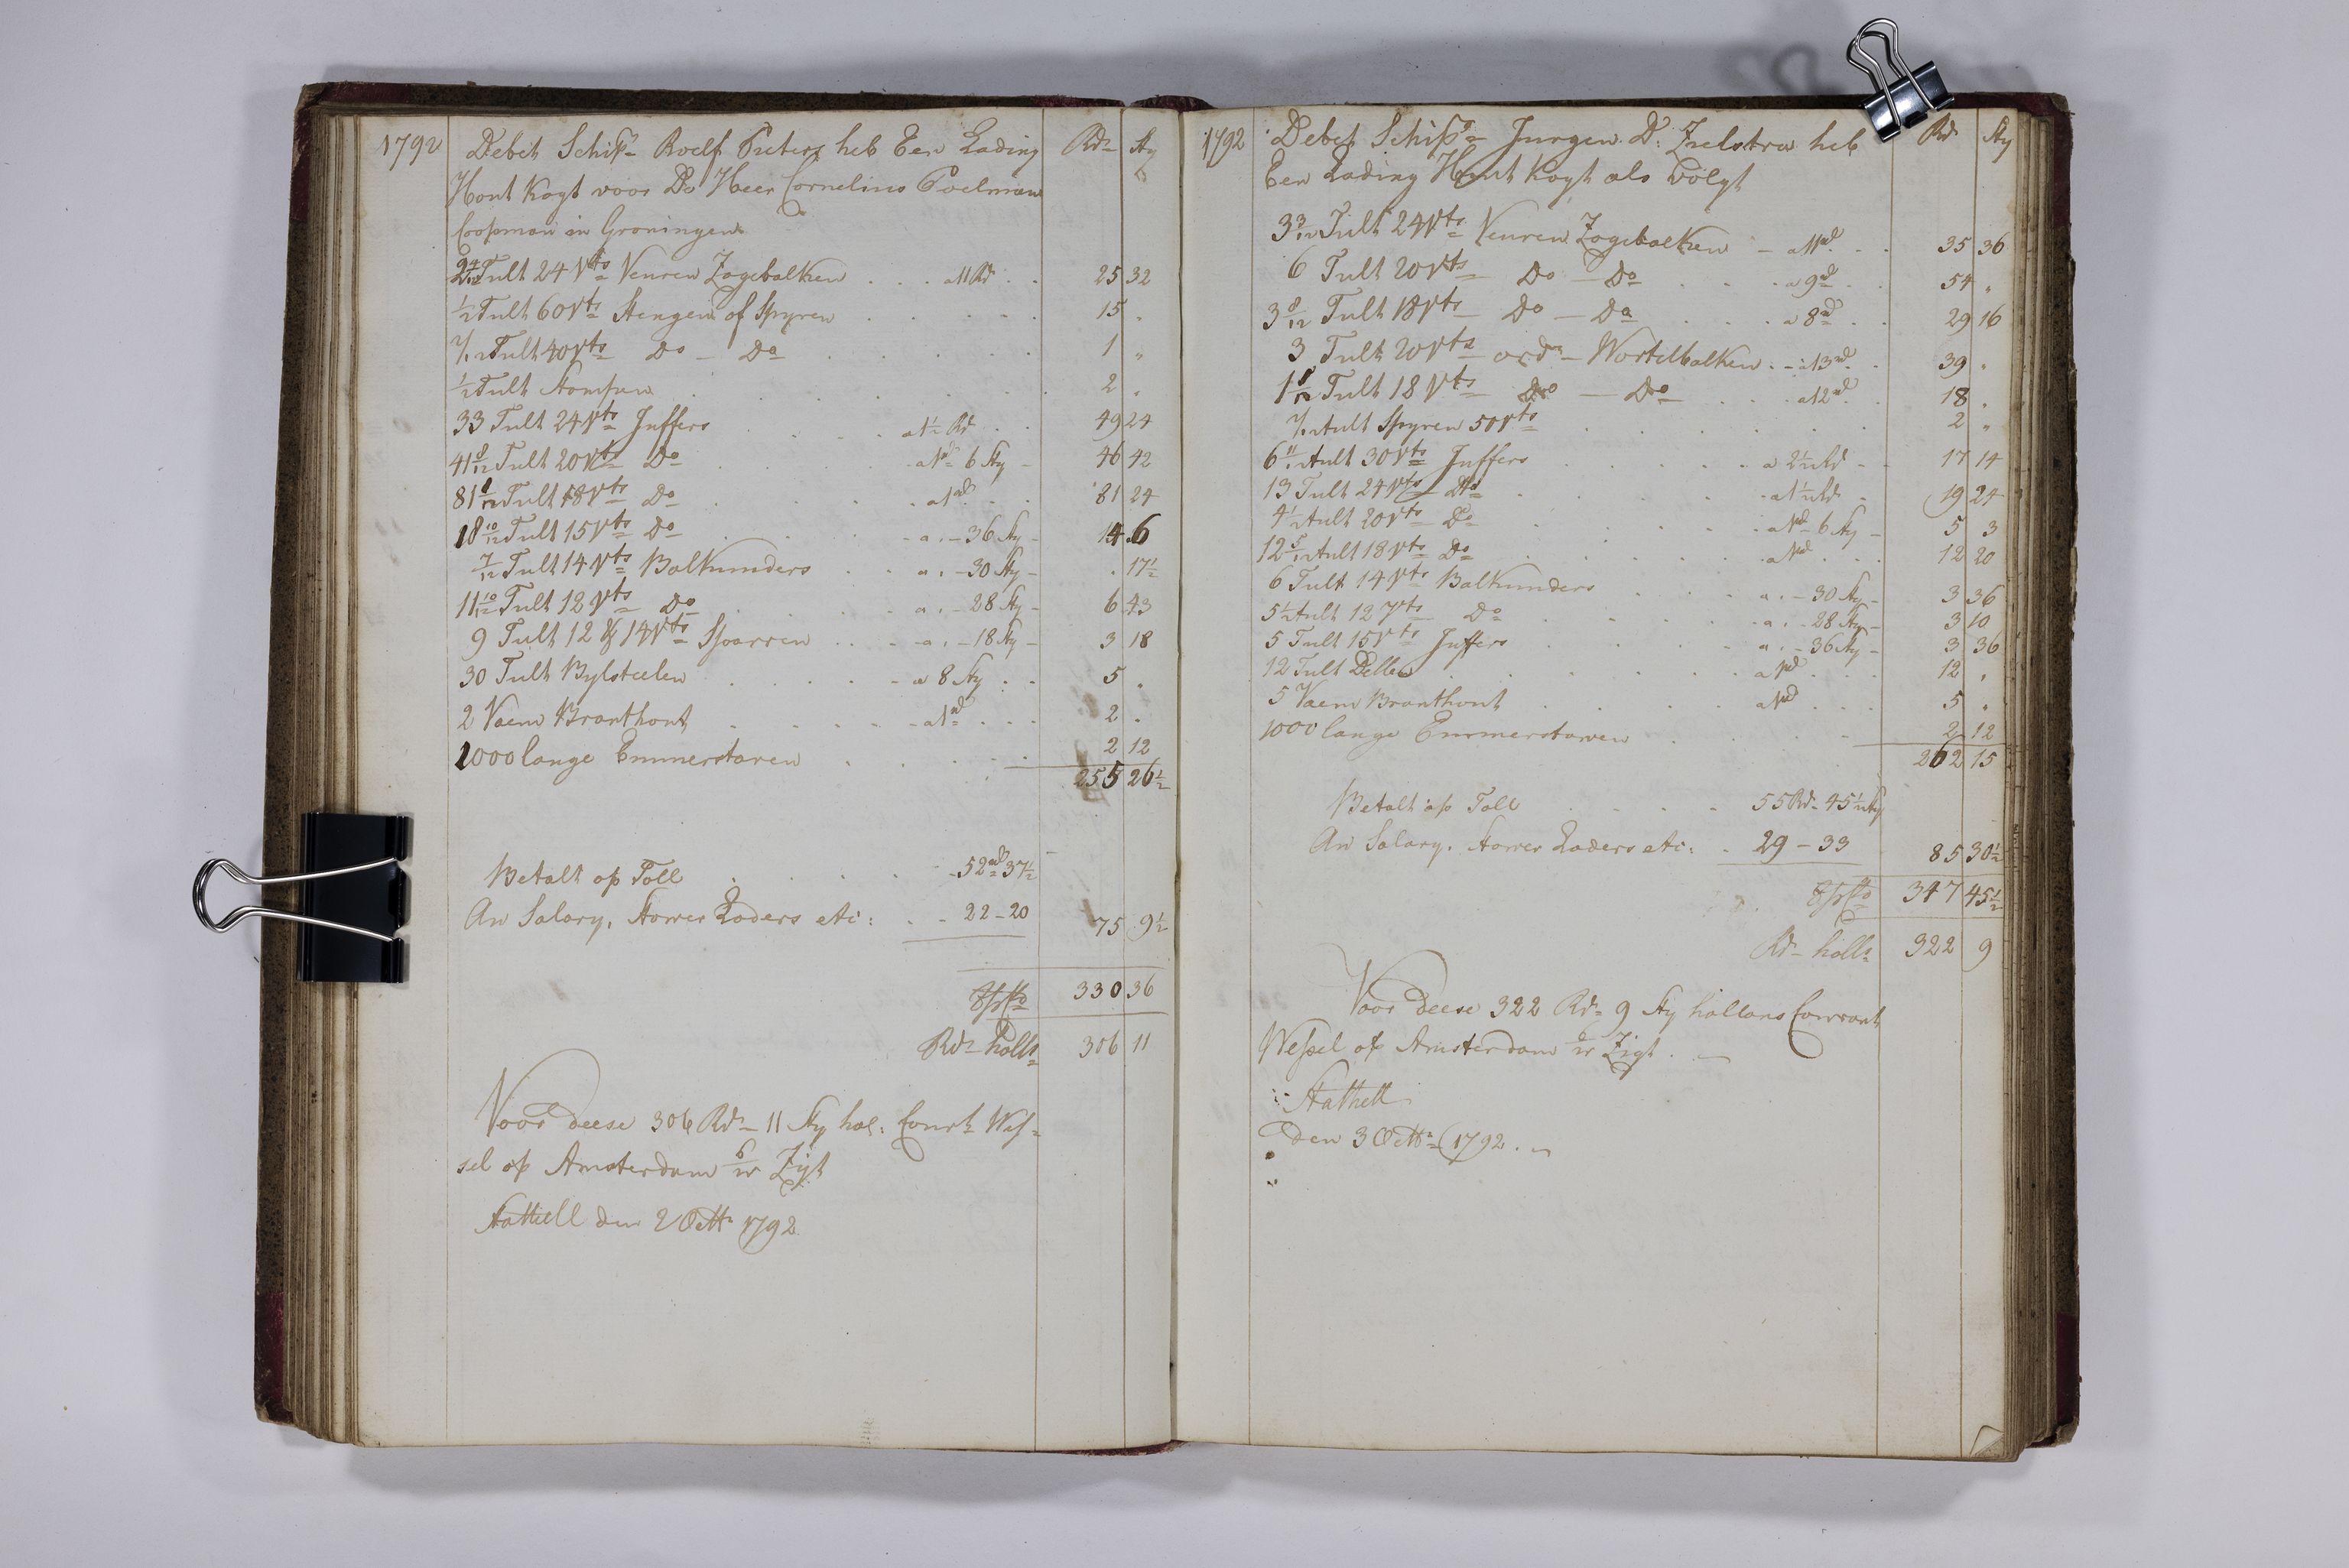 1792 Debet Schipr Roelf Pieters heb Een Lading Rdr Sty
Hout kogt voor De Heer Cornelius Poelman
Coopman in Groningen
2 4/12 Tult 24 Vts Veuren Zagebalken a 11 Rd 25 32
1/2 Tult 60 Vts Stengen of Spyren 15 "
1/12 Tult 40 Vts Do - Do 1 "
1/2 Tult Stompen 2 "
33 Tult 24 Vts Juffers a 1 1/2 Rd 49 24
41 8/12 Tult 20 Vts Do a 1 rd 6 Sty 46 42
81 Tult 18 Vts Do a 1 rd 81 24
18 10/12 Tult 15 Vts Do a " - 36 Sty 14 6
7/12 Tult 14 Vts Balkunders a " - 30 Sty " 17 1/2
11 10/12 Tult 12 Vts Do a " - 28 Sty 6 43
9 Tult 12 & 14 Vts Sparren a " - 18 Sty 3 18
30 Tult Bylsteelen a 8 Sty 5 "
2 Vaem Branthout a 1 rd 2 "
1000 lange Emmerstaven 2 12
255 26 1/2
Betalt op Toll 52 rd 37 1/2
An Salary, Stower Laders etc: 22 - 20 75 9 1/2
330 36
Rdr holls 306 11
Voor deese 306 Rdr 11 Sty hol: Court Wes=
sel op Amsterdam Zigt
Stathell den 2 Octbr 1792
1792 Debet Schipr Jurgen D: Zielstra heb Rdr Sty
Een Lading Hout kogt als volgt
3 3/12 Tult 24 Vts Veuren Zagebalken a 11 rd 35 36
6 Tult 20 Vts Do - Do a 9 rd 54 "
3 8/12 Tult 18 Vts Do - Do a 8 rd 29 16
3 Tult 20 Vts ordr Wortelbalken a 13 rd 39 "
1 Tult 18 Vts Do - Do a 12 rd 18 "
1/12 Tult Spyren 50 Vts 2 "
6 11/12 Tult 30 Vts Juffers a 2 1/2 Rd 17 14
13 Tult 24 Vts Do a 1 1/2 Rd 19 24
4 1/2 Tult 20 Vts Do a 1 rd 6 Sty 5 3
12 5/12 Tult 18 Vts Do a 1 rd 12 20
6 Tult 14 Vts Balkunders a " - 30 Sty 3 36
5 1/2 Tult 12 Vts Do a " - 28 Sty 3 10
5 Tult 15 Vts Juffers a " - 36 Sty 3 36
12 Tult Dellen a 1 rd 12 "
5 Vaem Branthout a 1 rd 5 "
1000 lange Emmerstaven 2 12
262 15
Betalt op Toll 55 Rdr 45 1/2 Sty
An Salary, Stower Laders etc: 29 - 33 85 30 1/2
347 45 1/2
Rdr holls 322 9
Voor deese 322 Rdr 9 Sty hollans Courant
Wessel op Amsterdam Zigt
Stathell
den 3 Octbr 1792